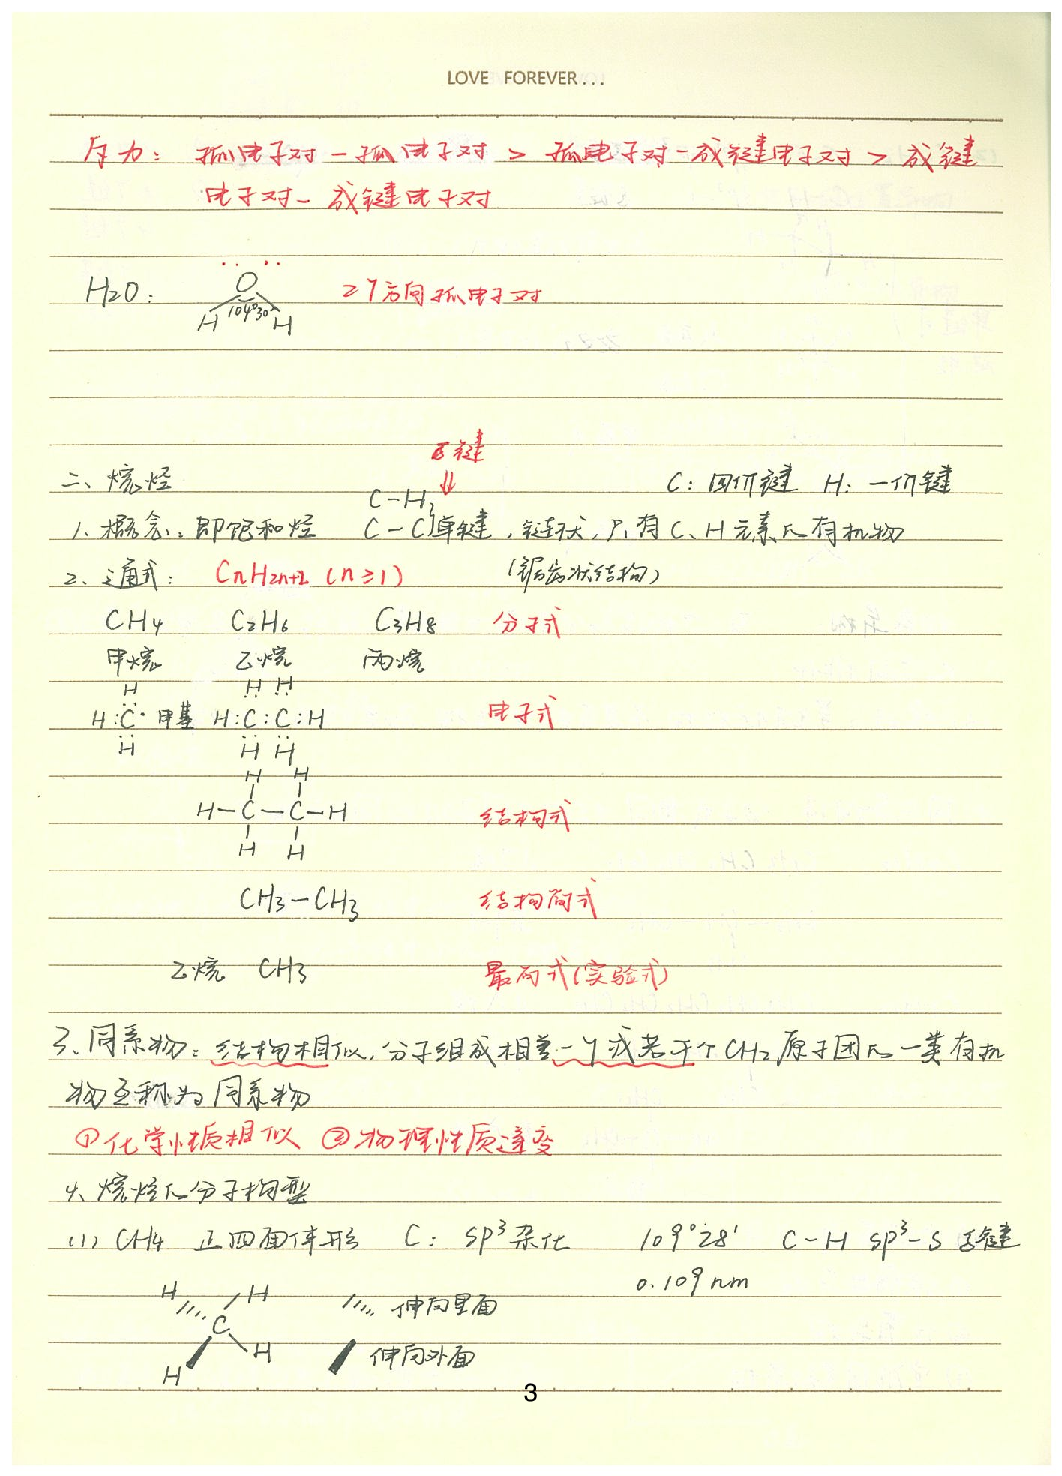 LOVE FOREVER...
斥力: 孤电子对-孤电子对 > 孤电子对-成键电子对 > 成键
电子对-成键电子对
H2O: O 104°30' H H 2个方向孤电子对
σ键
二、烷烃 C: 四价键 H: 一价键
C-H,
1、概念: 即饱和烃 C-C单键, 链状, 只有C、H元素的有机物
2、通式: CnH2n+2 (n≥1) (锯齿状结构)
CH4 C2H6 C3H8 分子式
甲烷 乙烷 丙烷
H H H
H:C· 甲基 H:C:C:H 电子式
H H H
H H
H-C-C-H 结构式
H H
CH3-CH3 结构简式
乙烷 CH3 最简式(实验式)
3、同系物: 结构相似, 分子组成相差一个或若干个CH2原子团的一类有机
物互称为同系物
①化学性质相似 ②物理性质递变
4、烷烃的分子构型
(1) CH4 正四面体形 C: sp³杂化 109°28' C-H sp³-s σ键
0.109nm
H H 伸向里面
C
H 伸向外面
H
3